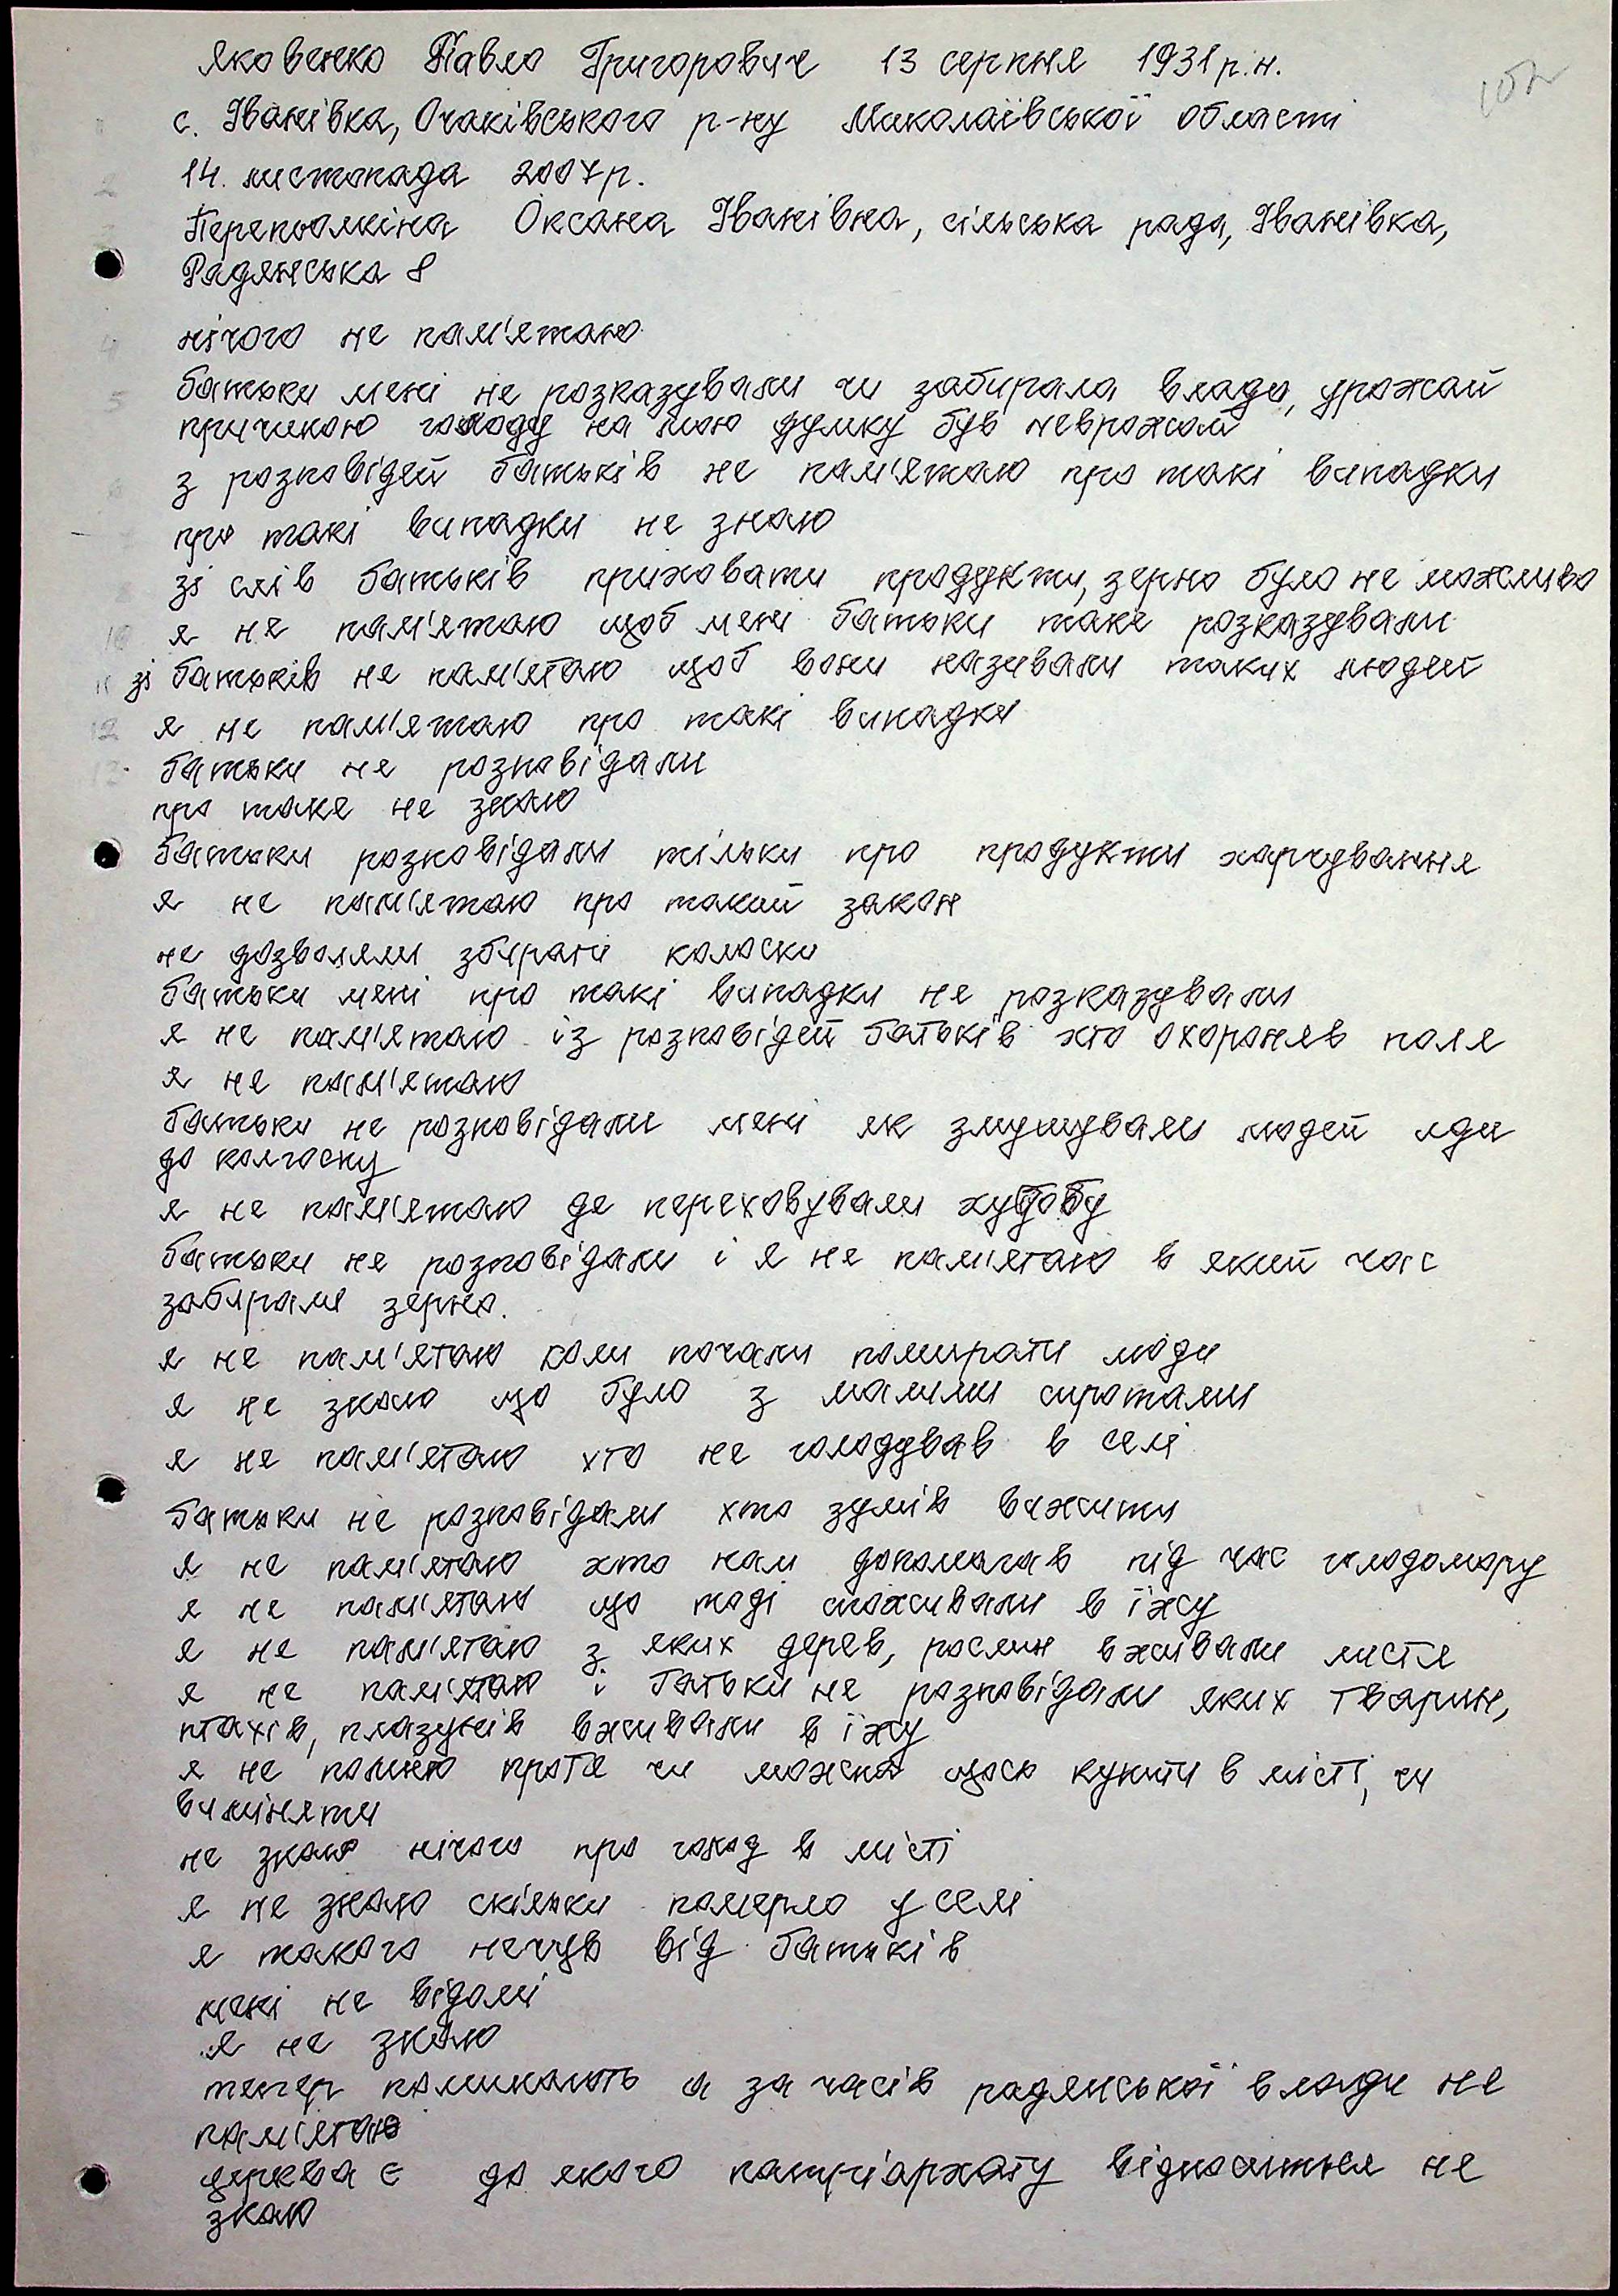 Яковенко Павло Григорович 13 серпня 1931 р.н.
с. Іванівка, Очаківського р-ну Миколаївської області
14. листопада 2007р.
Перепьолкіна Оксана Іванівна, сільська рада, Іванівка,
Радянська 8
нічого не пам'ятаю
4
батьки мені не розказували чи забирала влада, урожай
5
причиною голоду на мою думку був неврожай
з розповідей батьків не пам'ятаю про такі випадки
6
про такі випадки не знаю
зі слів батьків приховати продукти, зерно було не можливо
я не пам'ятаю щоб мені батьки таке розказували
10
зі батьків не пам'ятаю щоб вони називали таких людей
11
я не пам'ятаю про такі випадки
12
батьки не розповідали
13
про таке не знаю
батьки розповідали тільки про продукти харчування
я не пам'ятаю про такий закон
не дозволяли збирати колоски
батьки мені про такі випадки не розказували
я не пам'ятаю із розповідей батьків хто охороняв поля
я не пам'ятаю
батьки не розповідали мені як змушували людей йди
до колгоспу
я не пам'ятаю де переховували худобу
батьки не розповідали і я не пам'ятаю в який час
забирали зерно.
я не пам'ятаю коли почали помирати люди
я не знаю що було з малими сиротами
я не пам'ятаю хто не голодував в селі
батьки не розповідали хто зумів вижити
я не пам'ятаю хто нам допомагав під час голодомору
я не пам'ятаю що тоді споживали в їжу
я не пам'ятаю з яких дерев, рослин вживали листя
я не пам'ятаю і батьки не розповідали яких тварин,
птахів, плазунів вживали в їжу
я не помню проте чи можна щось купити в місті, чи
виміняти
не знаю нічого про голод в місті
я не знаю скільки померло у селі
я такого нечув від батьків
мені не відомі
я не знаю
тепер поминають а за часів радянської влади не
пам'ятаю
церква є до якого патріархату відноситься не
знаю